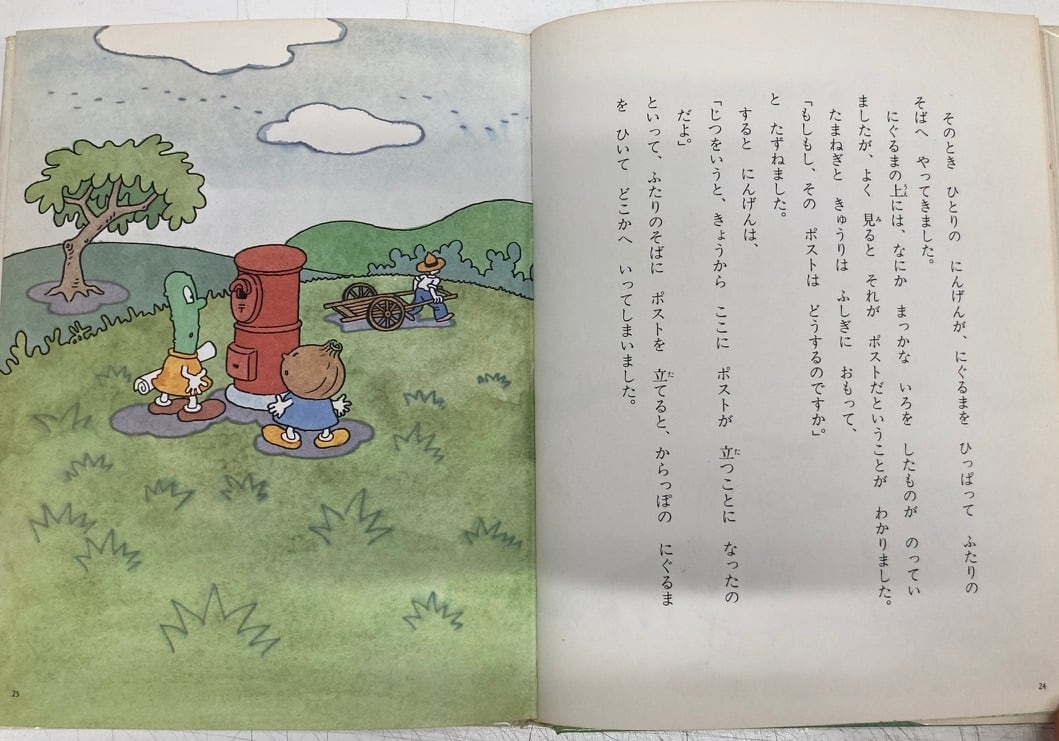 そのとき　ひとりの　にんげんが、にぐるまを　ひっぱって　ふたりの
そばへ　やってきました。
にぐるまの上には、なにか　まっかな　いろを　したものが　のってい
ましたが、よく　見ると　それが　ポストだということが　わかりました。
たまねぎと　きゅうりは　ふしぎに　おもって、
「もしもし、その　ポストは　どうするのですか。」
と　たずねました。
すると　にんげんは、
「じつをいうと、きょうから　ここに　ポストが　立つことに　なったの
だよ。」
といって、ふたりのそばに　ポストを　立てると、からっぽの　にぐるま
を　ひいて　どこかへ　いってしまいました。
24
〒
25